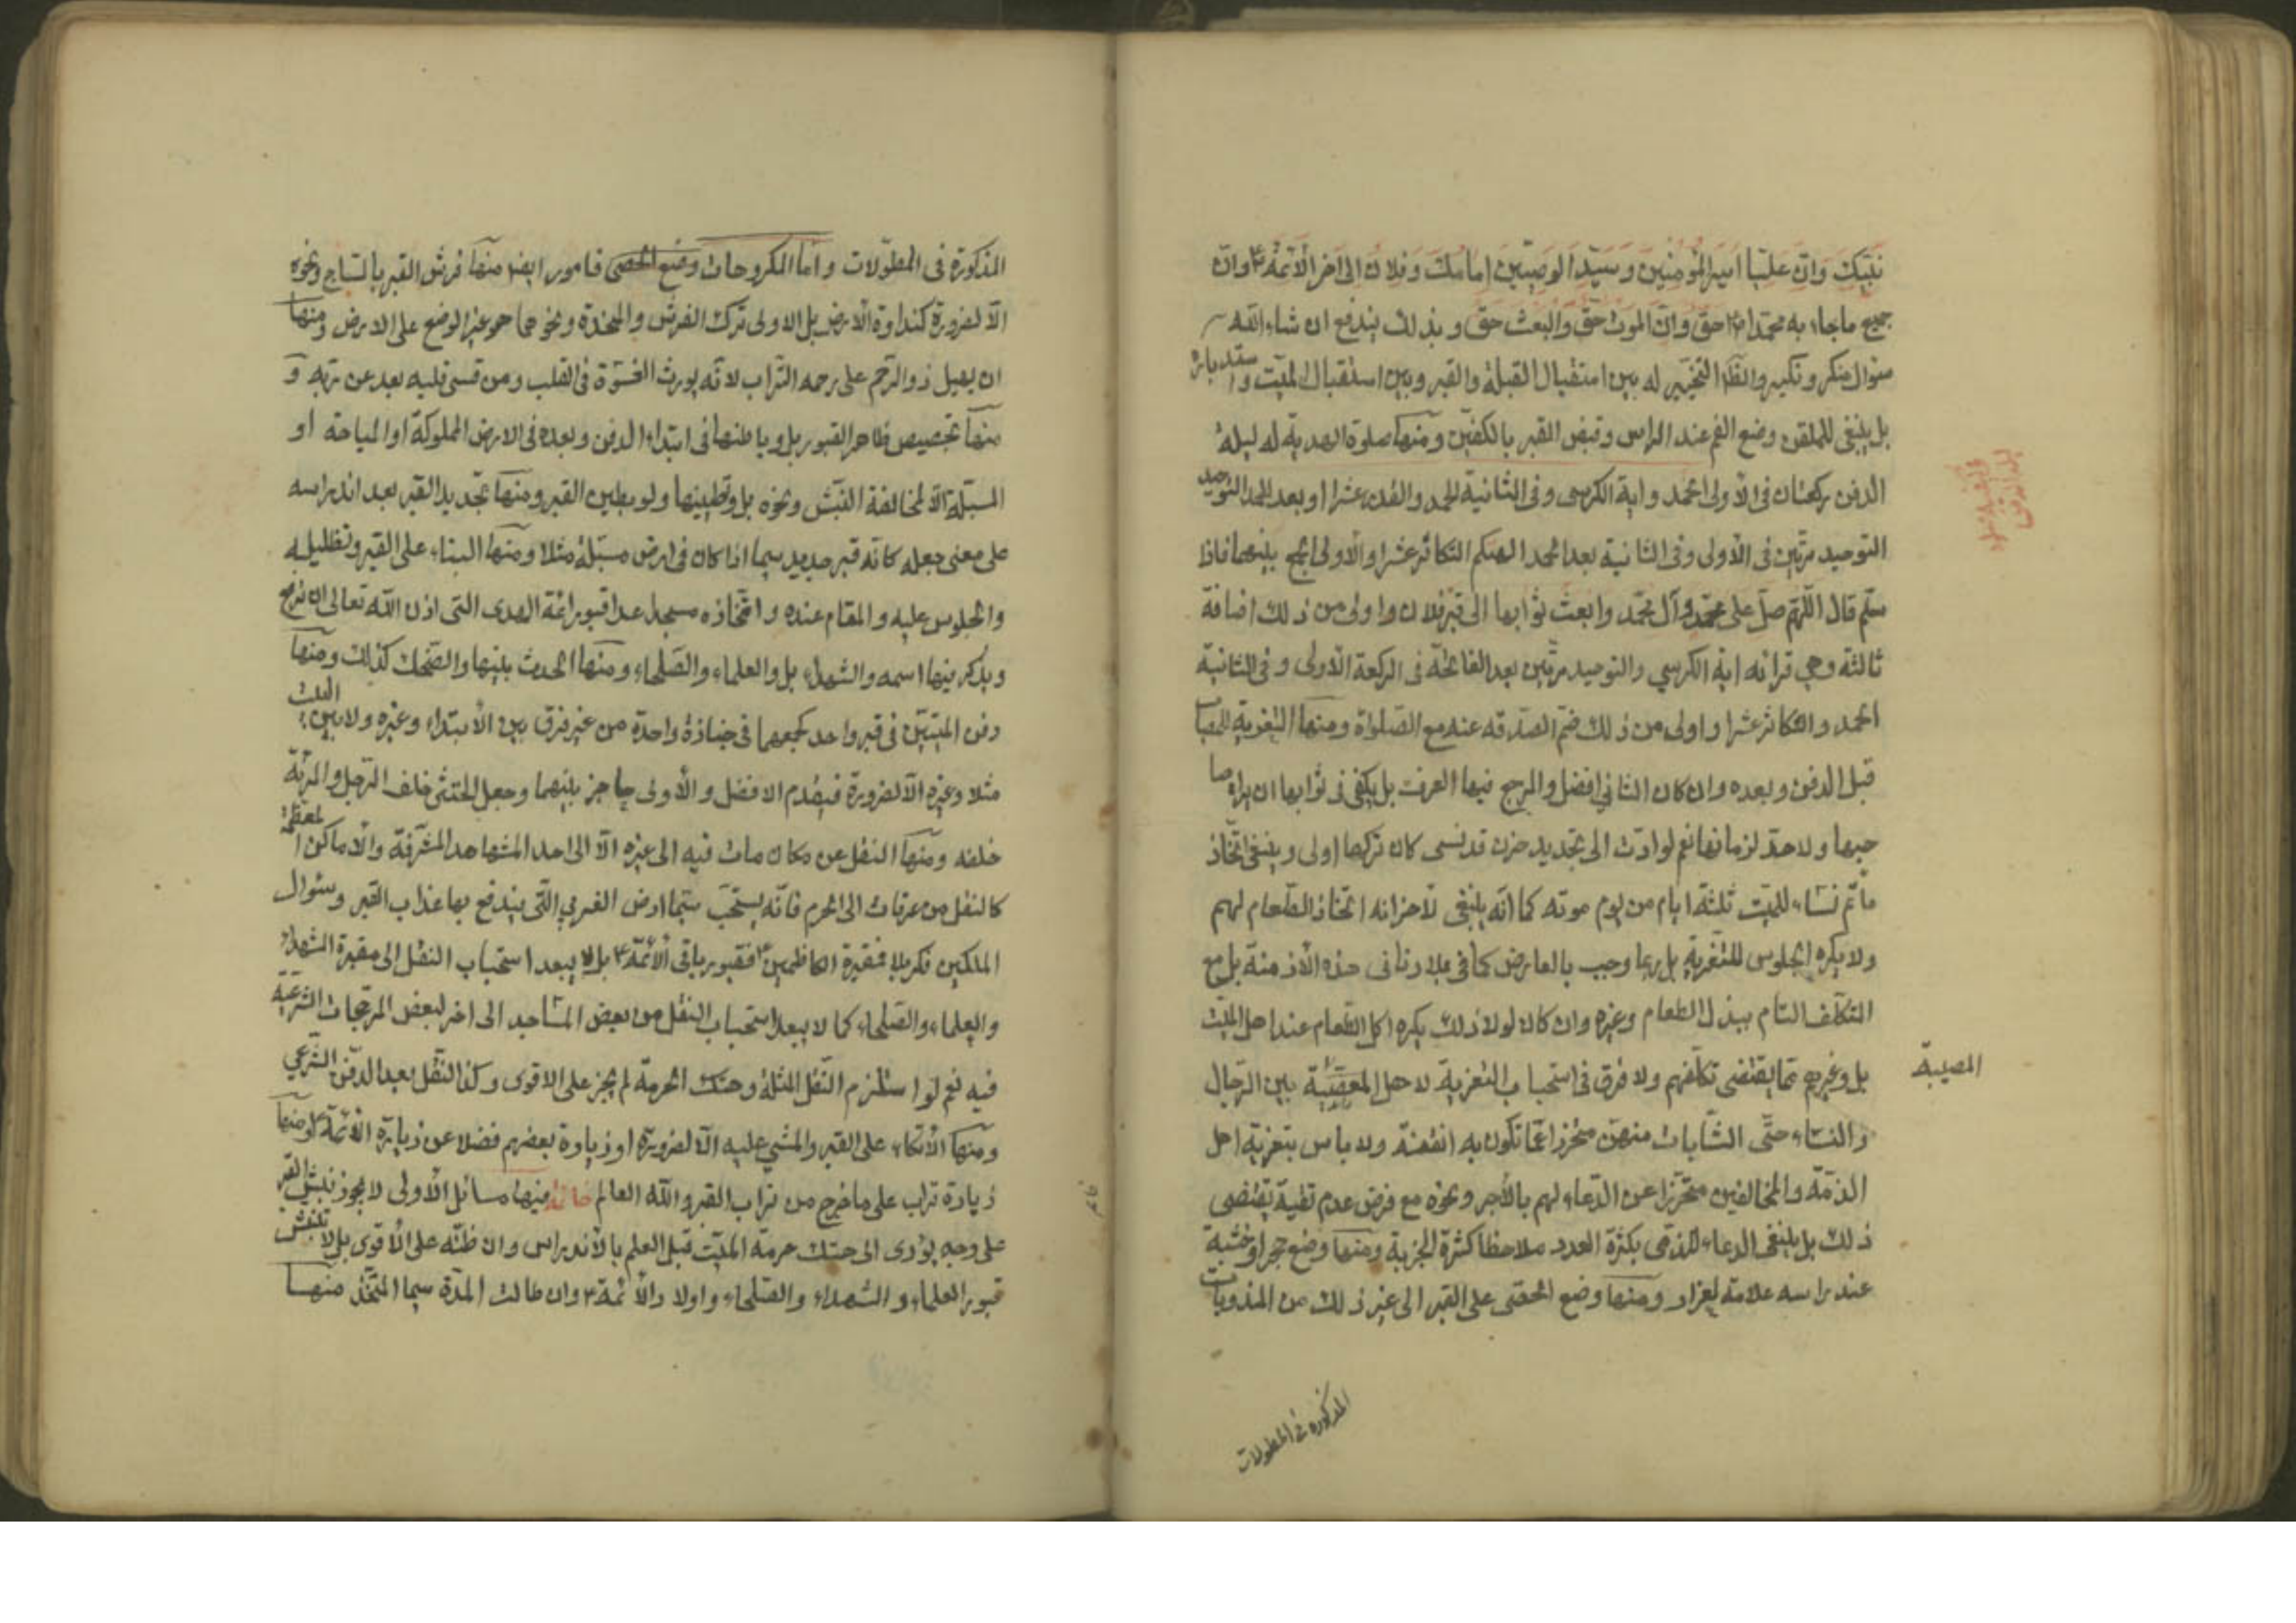 نبيّك وانّ عليّا امير المؤمنين وسيّد الوصيّين امامك وفلان الى آخر الأئمة ع وانّ
جميع ماجاء به محمّد ص حق وانّ الموت حقّ والبعث حق وبذلك يندفع ان شاء اللّه
سؤال منكر ونكير والظ التخيير له بين استقبال القبلة والقبر وبين استقبال الميّت واستدباره
بل ينبغى للملقن وضع الفم عند الراس وقبض القبر بالكفيّن ومنها صلوة الهدية له ليلة
الدفن ركعتان فى الأولى الحمد واية الكرسى وفى الثانية الحمد والقدر عشرا او بعد الحمد التوحيد
التوحيد مرّتين فى الأولى وفى الثانية بعد الحمد الهيكم التكاثر عشرا والأولى الجمع بينهما فاذا
سلّم قال اللّهمّ صلّ على محمّد وآل محمّد وابعث ثوابها الى قبر فلان واولى من ذلك اضافة
ثالثة وهي قرائة اية الكرسي والتوحيد مرّتين بعد الفاتحة فى الركعة الأولى وفى الثانية
الحمد والتكاثر عشرا واولى من ذلك ضمّ الصدقه عنه مع الصّلواة ومنها التعزية للمصاب
قبل الدفن وبعده وان كان الثاني افضل والمرجع فيها العرف بل يكفى فى ثوابها ان يراه صا
حبها ولا حدّ لزمانها نعم لو ادّت الى تجديد حزن قد نسى كان تركها اولى وينبغى اتّخاذ
مأتم نساء للميّت ثلثة ايام من يوم موته كما انّه ينبغى لأحزانه اتخاذ الطّعام لهم
ولا يكره الجلوس للتعزية بل ربما وجب بالعارض كما فى بلادنا فى هذه الأزمنة بل مع
التكلّف التام ببذل الطعام وغيره وان كان لولا ذلك يكره اكل الطّعام عند اهل الميّت
بل وغيرهم ممّا يقتضى تكلّفهم ولا فرق فى استحباب التعزية لاهل المصيبة بين الرّجال
المصيبة
والنساء حتّى الشّابات منهنّ متحرّزا عمّا تكون به الفتنة ولا باس بتعزية اهل
الذمّة والمخالفين متحرّزا عن الدّعاء لهم بالأجر ونحوه مع فرض عدم تقية يقتضى
ذلك بل ينبغى الدعاء للذمّى بكثرة العدد ملاحظا كثرة الجزية ومنها وضع حجر او خشبة
عند راسه علامة ليزار ومنها وضع الحصى على القبر الى غير ذلك من المندوبات
المذكورة فى المطولات
المذكورة فى المطوّلات وامّا المكروهات وضع الحصى فامور ايضا منها فرش القبر بالسّاج ونحوه
الّا لضرورة كنداوة الأرض بل الاولى ترك الفرش والمخدّة ونحوهما هو غير الوضع على الارض ومنها
ان يهيل ذو الرّحم على رحمه التراب لانّه يورث القسوة فى القلب ومن قسى قلبه بعد عن ربّه و
منها تجصيص ظاهر القبور بل وباطنها فى ابتداء الدفن وبعده فى الارض المملوكة او المباحة او
المسبّلة الّا لمخالفة النّبش ونحوه بل وتطيينها ولو بطين القبر ومنها تجديد القبر بعد اندراسه
على معنى جعله كانّه قبر جديد سيما اذا كان فى ارض مسبّلة مثلا ومنها البناء على القبر وتظليله
والجلوس عليه والمقام عنده واتّخاذه مسجد عدا قبور ائمّة الهدى التى اذن اللّه تعالى ان ترفع
ويذكر فيها اسمه والشهداء بل والعلماء والصّلحاء ومنها الحدث بينها والضحك كذلك ومنها
دفن الميّتيّن فى قبر واحد كجمعهما فى جنازة واحدة من غير فرق بين الأبتداء وغيره ولا بين البيت
مثلا وغيره الّا لضرورة فيقدم الافضل والأولى حاجز بينهما وجعل الخنثى خلف الرّجل والمرئة
خلفه ومنها النقل عن مكان مات فيه الى غيره الّا الى احد المشاهد المشرّفة والأماكن المعظمة
كالنقل من عرفات الى الحرم فانّه يستحبّ سيّما ارض الغري الّتى يندفع بها عذاب القبر وسئوال
الملكين فكربلا فمقبرة الكاظميين ع فقبور باقى الأئمّة ع بل لا يبعد استحباب النقل الى مقبرة الشهداء
والعلماء والصّلحاء كما لا يبعد استحباب النقل من بعض المشاهد الى اخر لبعض المرجّحات الشّرعيّة
فيه نعم لو استلزم النّقل المثلة وهتك الحرمة لم يجز على الاقوى وكذا النّقل بعد الدّفن الشّرعي
ومنها الأتّكاء على القبر والمشي عليه الّا لضرورة او زيارة بعضهم فضلا عن زيارة الأئمّة ع ومنها
زيادة تراب على ما خرج من تراب القبر واللّه العالم خاتمة فيها مسائل الأولى لا يجوز نبش القبر
على وجه يؤدى الى هتك حرمة الميّت قبل العلم بالأندراس وان ظنّه على الأقوى بل لا تنبش
قبور العلماء والشهداء والصّلحاء واولاد الأئمّة ع وان طالت المدّة سيما المتّخذ منها